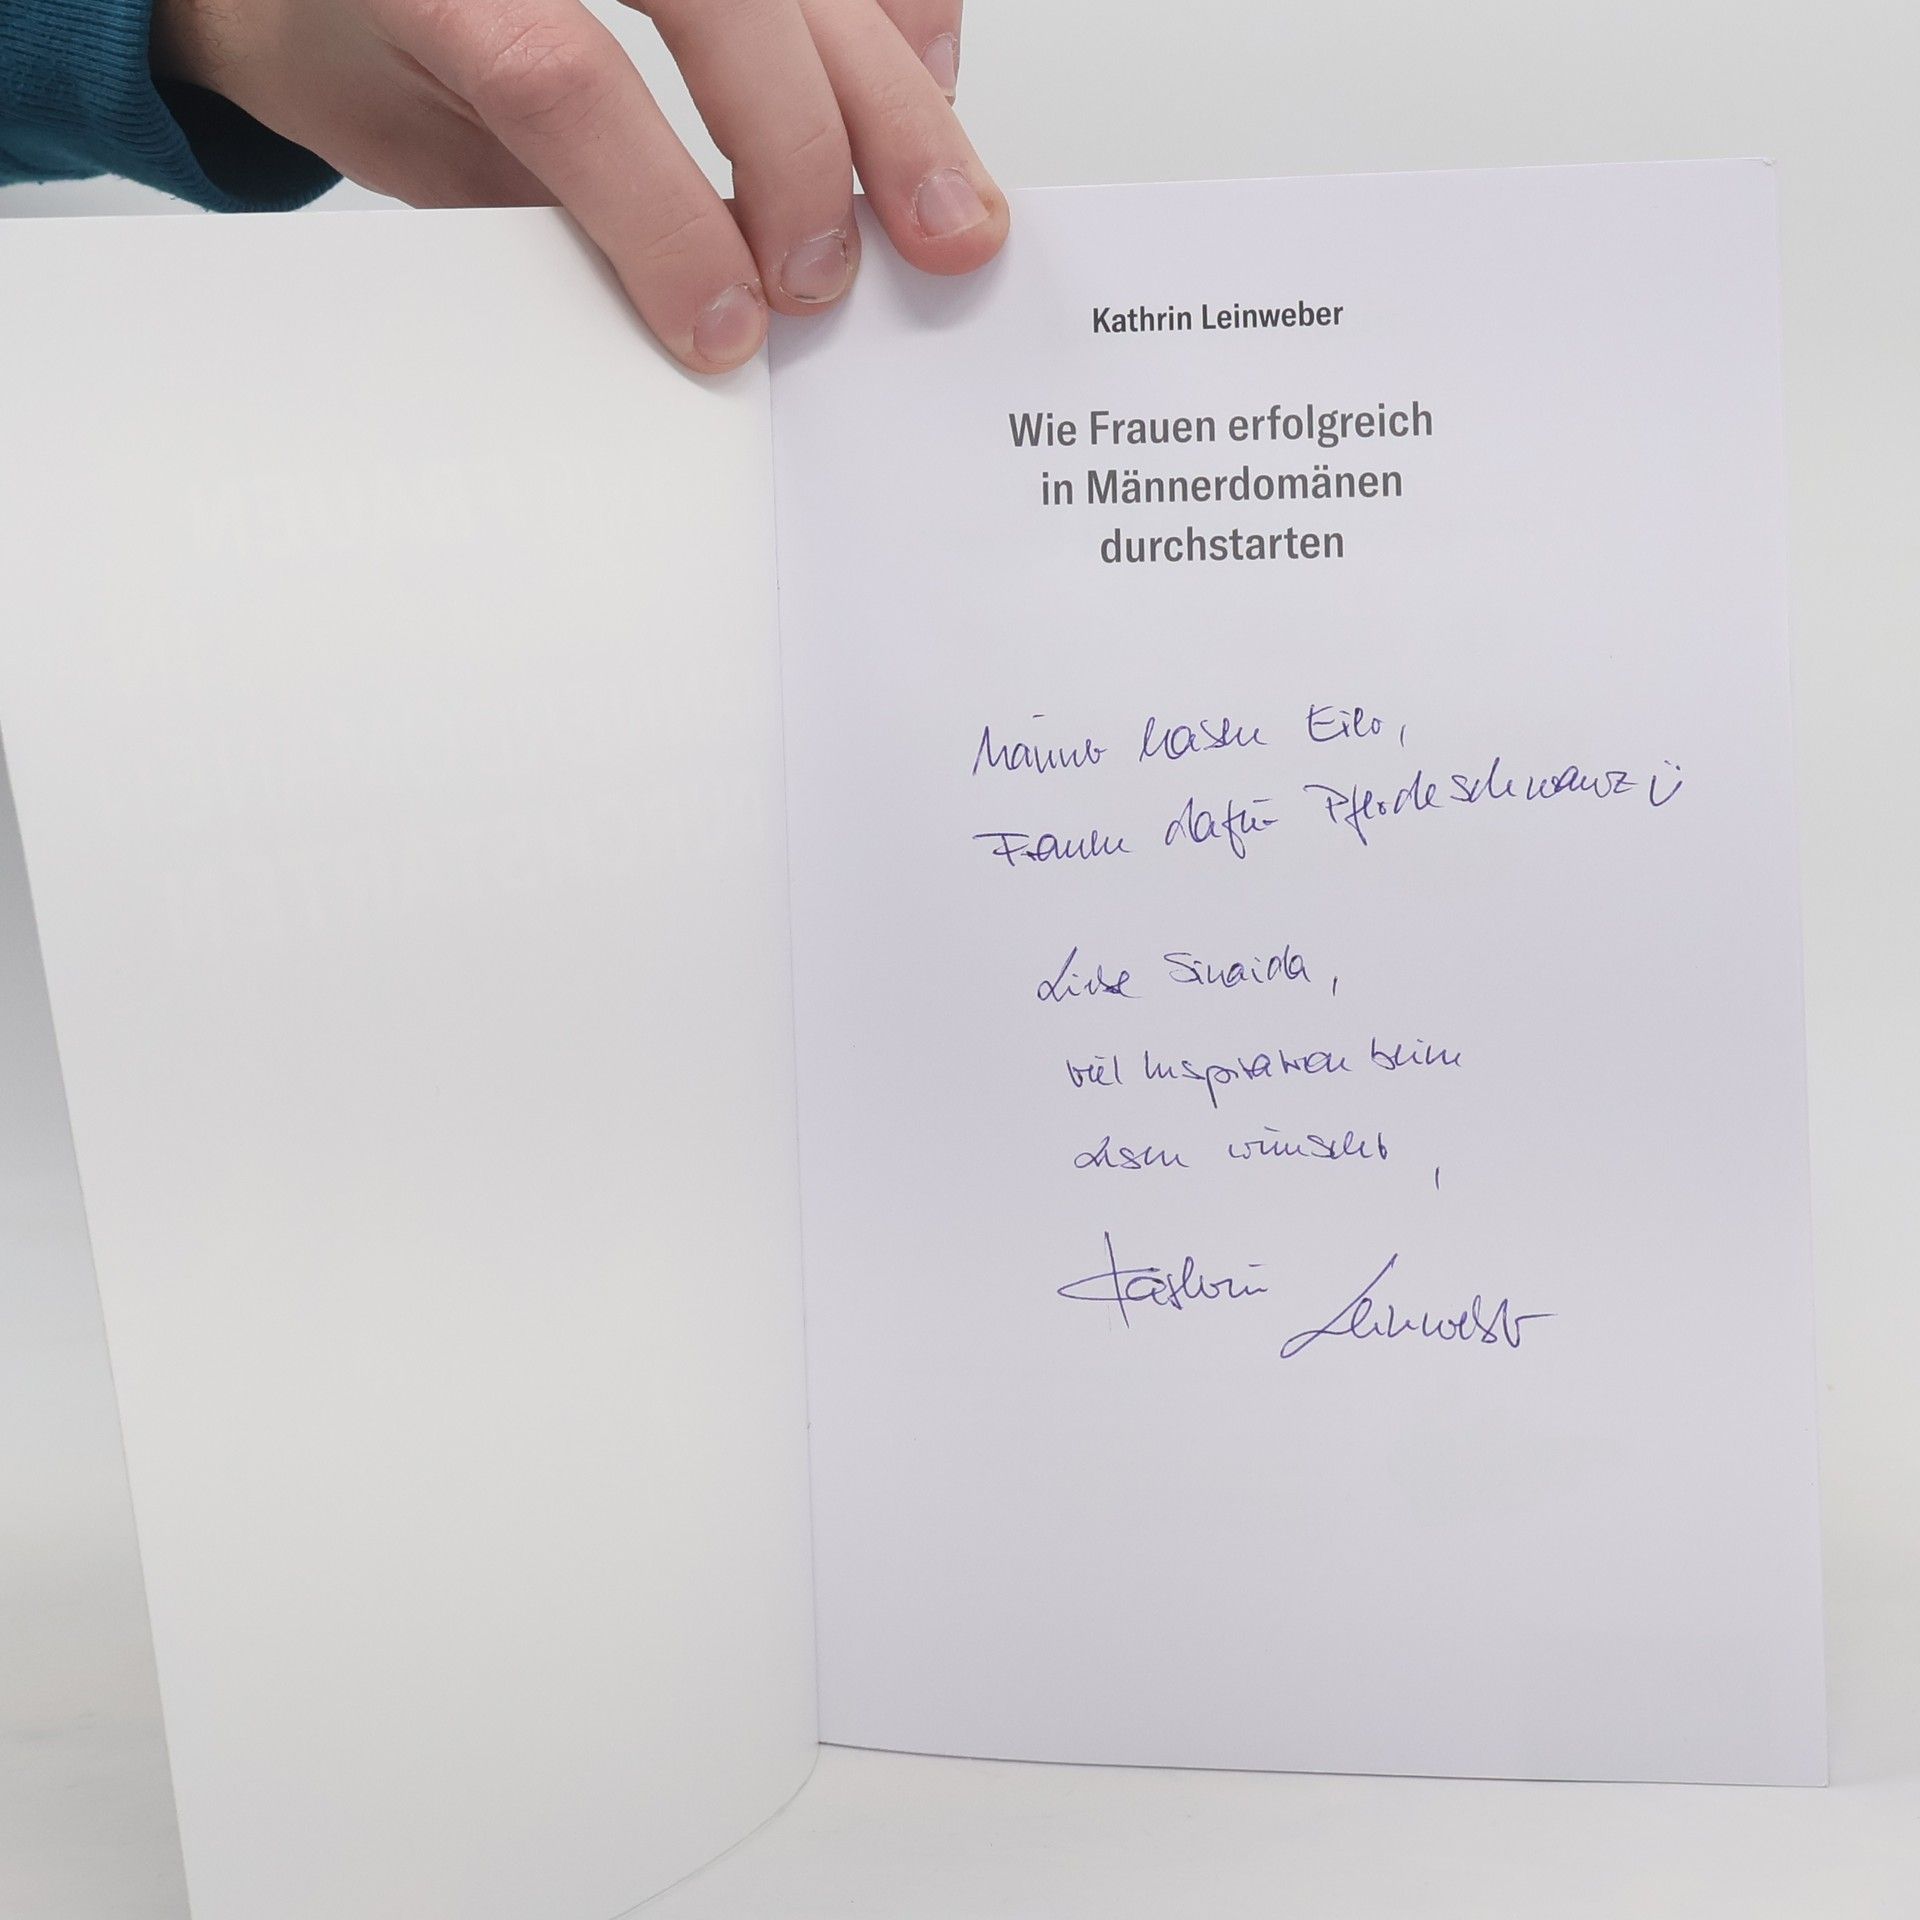 Kathrin Leinweber
Wie Frauen erfolgreich
in Männerdomänen
durchstarten
Männer hassen Eile,
Frauen dafür Pferdeschwanz ü
Liebe Sinaida,
viel Inspiration beim
Lesen wünscht,
Kathrin Leinweber